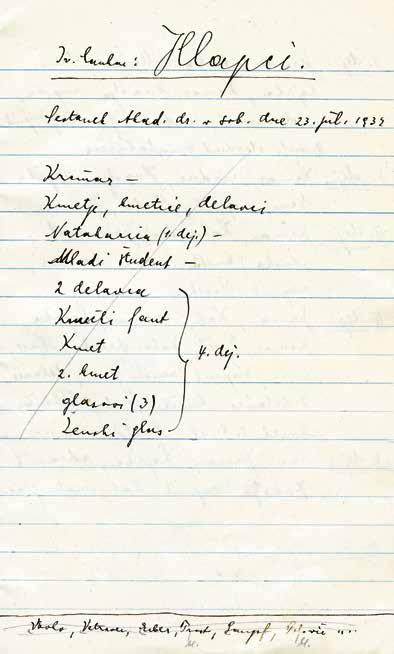 Iv. Cankar: Hlapci.
Sestanek Akad. dr. v sob. dne 23. jul. 1937
Krčmar —
Kmetje, kmetice, delavci
Natakarica (1. dej.) —
Mladi študent —
2 delavca
Kmečki fant
Kmet
2. kmet
4. dej.
glasovi (3)
Ženski glas